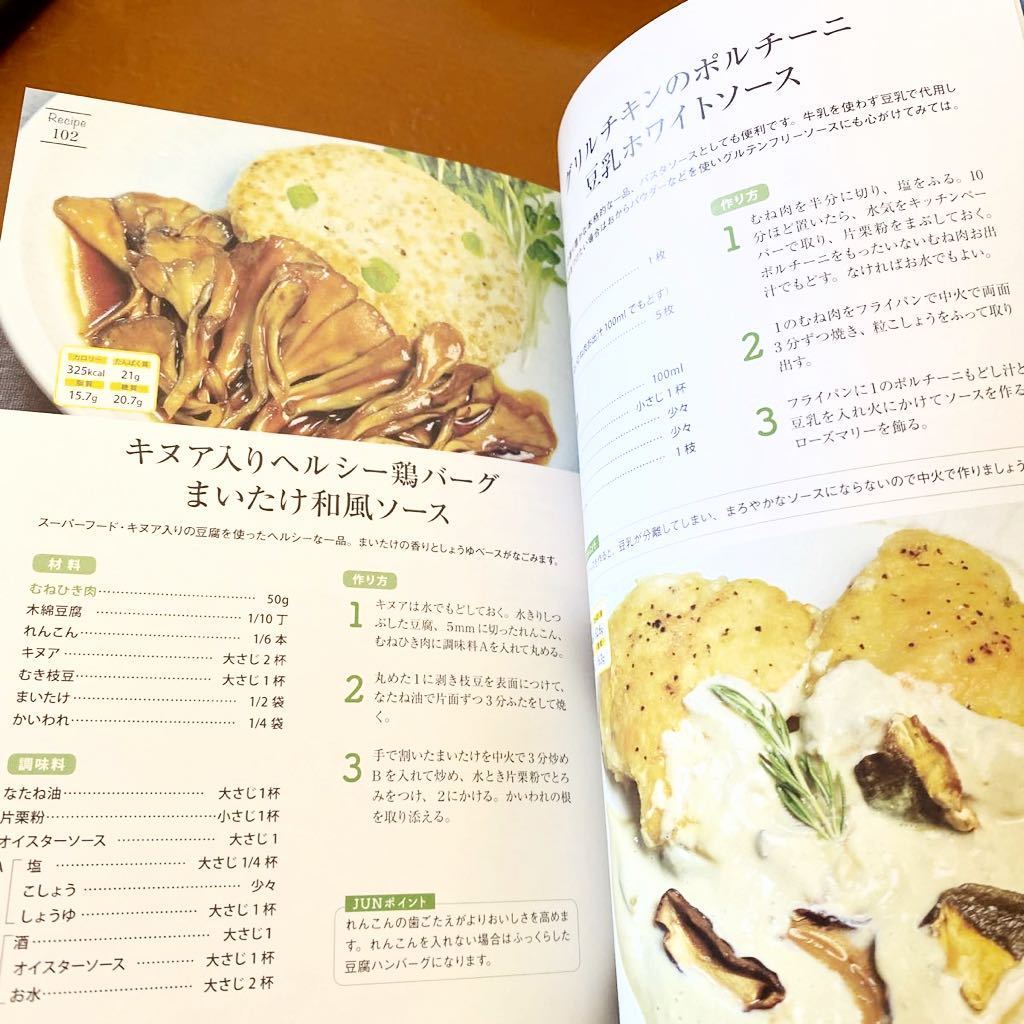 Recipe
102
カロリー
たんぱく質
325kcal
21g
脂質
糖質
15.7g
20.7g
キヌア入りヘルシー鶏バーグ
まいたけ和風ソース
スーパーフード・キヌア入りの豆腐を使ったヘルシーな一品。まいたけの香りとしょうゆベースがなごみます。
材料
むねひき肉 50g
木綿豆腐 1/10 丁
れんこん 1/6 本
キヌア 大さじ 2 杯
むき枝豆 大さじ 1 杯
まいたけ 1/2 袋
かいわれ 1/4 袋
調味料
なたね油 大さじ1杯
片栗粉 小さじ1杯
オイスターソース 大さじ 1
塩 大さじ 1/4 杯
こしょう 少々
しょうゆ 大さじ 1 杯
酒 大さじ1
オイスターソース 大さじ 1 杯
お水 大さじ 2 杯
作り方
1 キヌアは水でもどしておく。水きりしつ
ぶした豆腐、5mmに切ったれんこん、
むねひき肉に調味料Aを入れて丸める。
2 丸めた1に剥き枝豆を表面につけて、
なたね油で片面ずつ3分ふたをして焼
く。
3 手で割いたまいたけを中火で3分炒め
Bを入れて炒め、水とき片栗粉でとろ
みをつけ、2にかける。かいわれの根
を取り添える。
JUNポイント
れんこんの歯ごたえがよりおいしさを高めま
す。れんこんを入れない場合はふっくらした
豆腐ハンバーグになります。
グリルチキンのポルチーニ
豆乳ホワイトソース
な本格的な一品、パスタソースとしても便利です。牛乳を使わず豆乳で代用し
場合はおからパウダーなどを使いグルテンフリーソースにも心がけてみては。
1 枚
100ml でもどす)
5 枚
100ml
小さじ 1 杯
少々
少々
1 枝
作り方
1 むね肉を半分に切り、塩をふる。10
分ほど置いたら、水気をキッチンペー
パーで取り、片栗粉をまぶしておく。
ポルチーニをもったいないむね肉お出
汁でもどす。なければお水でもよい。
2 1のむね肉をフライパンで中火で両面
3分ずつ焼き、粒こしょうをふって取り
出す。
3 フライパンに1のポルチーニもどし汁と
豆乳を入れ火にかけてソースを作る
ローズマリーを飾る。
と、豆乳が分離してしまい、まろやかなソースにならないので中火で作りましょう